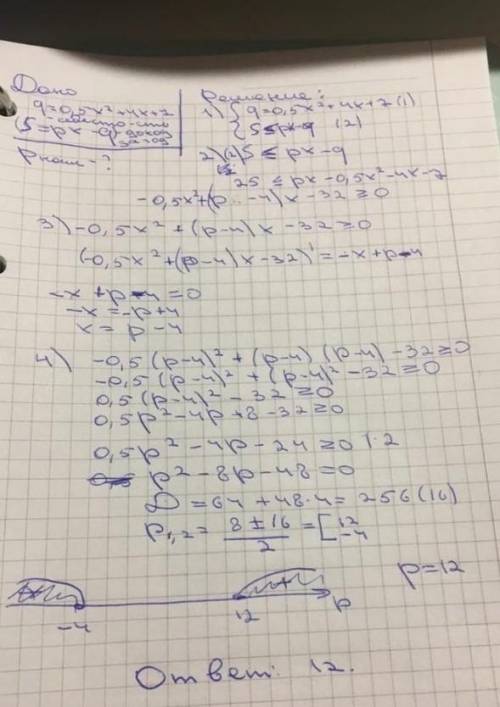 Дано
q=0,5x²+4x+7
себест-сть
S=px-q-доход за год
p наим-?
Решение:
1) { q=0,5x²+4x+7 (1)
{ 5≤px-q (2)
2) (2) 5≤px-q
25≤px-0,5x²-4x-7
-0,5x²+(p-4)x-32≥0
3) -0,5x²+(p-4)x-32≥0
(-0,5x²+(p-4)x-32)'=-x+p-4
-x+p-4=0
-x=-p+4
x=p-4
4) -0,5(p-4)²+(p-4)(p-4)-32≥0
-0,5(p-4)²+(p-4)²-32≥0
0,5(p-4)²-32≥0
0,5p²-4p+8-32≥0
0,5p²-4p-24≥0 |·2
p²-8p-48=0
D=64+48·4=256(16)
p₁,₂=8±16/2=[12 -4
-4 12 p
p=12
Ответ: 12.